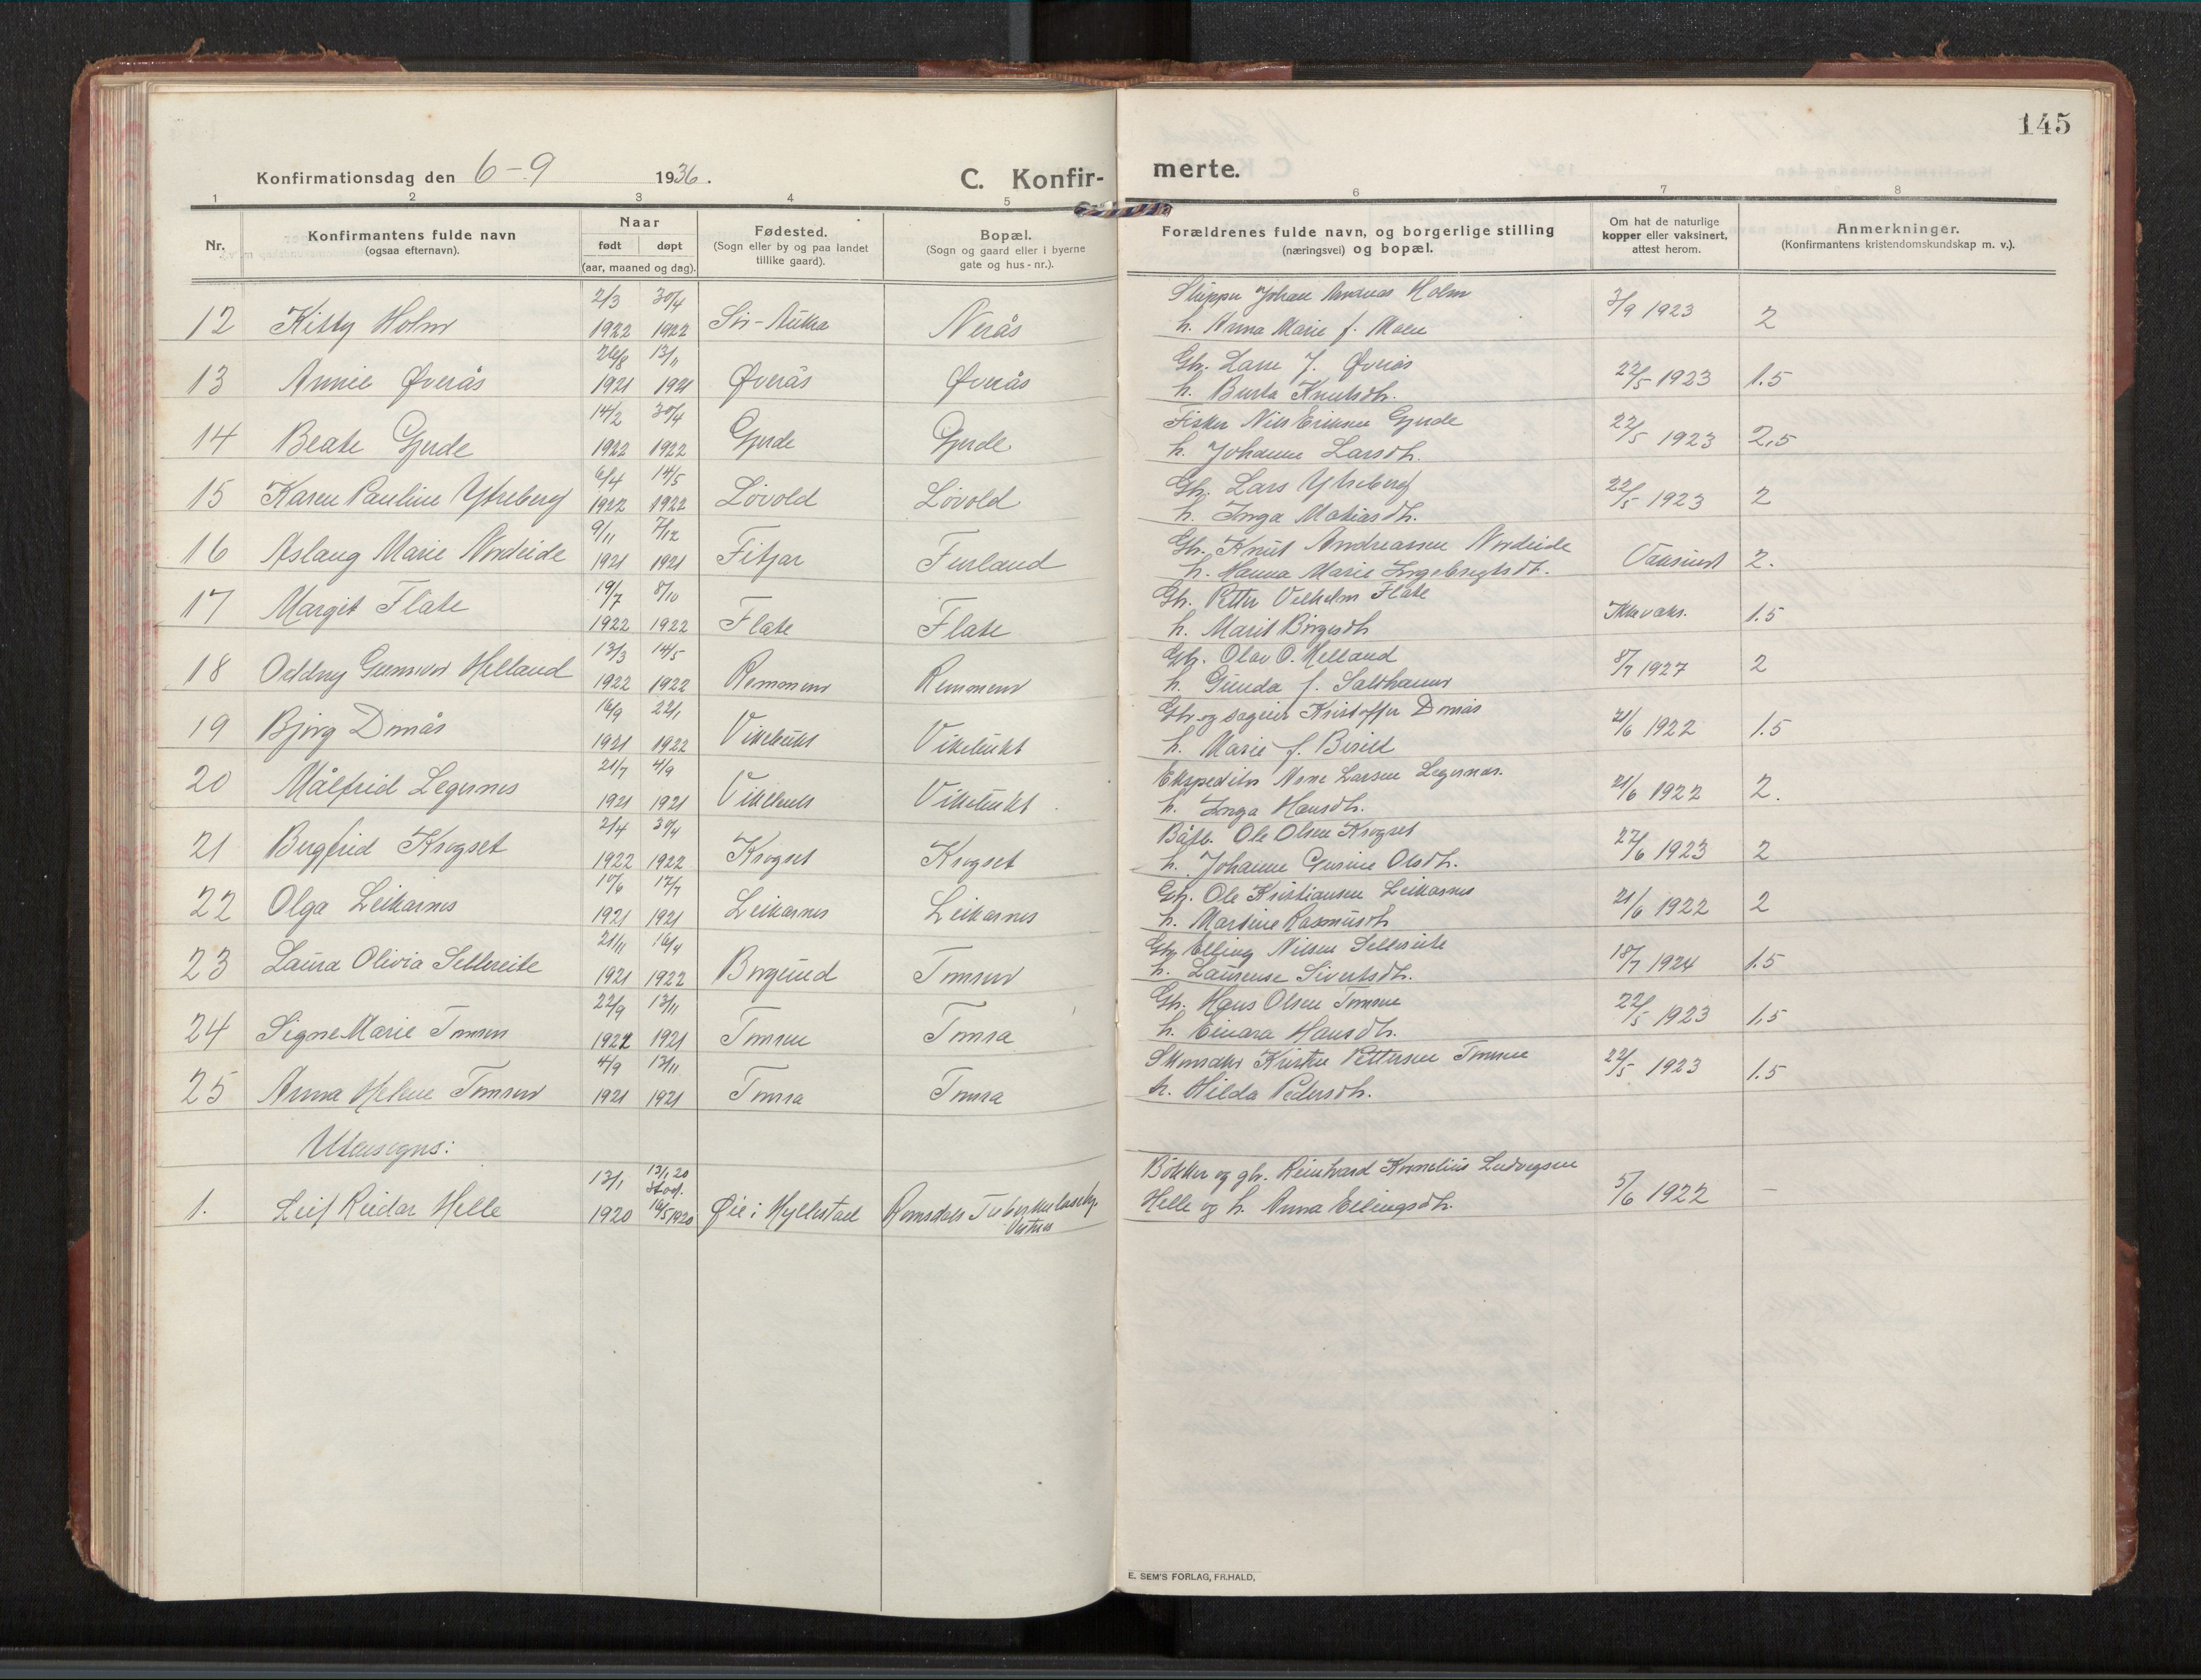 145
Konfirmationsdag den 6-9 1936. C. Konfirmerte.
1 2 3 4 5 6 7 8
Nr. Konfirmantens fulde navn (ogsaa efternavn). Naar født døpt (aar, maaned og dag). Fødested. (Sogn eller by og paa landet tillike gaard). Bopæl. (Sogn og gaard eller i byerne gate og hus-nr.). Forældrenes fulde navn, og borgerlige stilling (næringsvei) og bopæl. Om hat de naturlige kopper eller vaksinert, attest herom. Anmerkninger. (Konfirmantens kristendomskundskap m. v.).
2/3 30/4 Skipper Johan Andreas Holm
12 Kitty Holm 1922 1922 Sør-Aukra Nerås h. Anna Marie f. Moen 3/9 1923 2
26/8 13/11 Gbr. Lars J. Øverås
13 Annie Øverås 1921 1921 Øverås Øverås h. Berta Knutsdtr. 22/5 1923 1.5
14/2 30/4 Fisker Nils Eriksen Gjerde
14 Beate Gjerde 1922 1922 Gjerde Gjerde h. Johanne Larsdtr. 22/5 1923 2,5
6/4 14/5 Gbr. Lars Ytreberg
15 Karen Pauline Ytreberg 1922 1922 Løvold Løvold h. Inga Matiasdtr. 22/5 1923 2
9/11 7/12 Gbr. Knut Andreassen Nordeide
16 Aslaug Marie Nordeide 1921 1921 Fitjar Furland h. Hanna Marie Ingebrigtsdtr. 2.
19/7 8/10 Gbr. Petter Vilhelm Flate
17 Margit Flate 1922 1922 Flate Flate h. Marit Børgesdtr. Ikke vaks. 1.5
13/3 14/5 Gbr. Olav O. Helland
18 Oddny Gunnvor Helland 1922 1922 Remmem Remmem h. Gunda f. Salthammer 8/7 1927 2
16/9 22/1 Gbr. og sageier Kristoffer Dronås
19 Bjørg Dronås 1921 1922 Vikebukt Vikebukt h. Marie f. Birild 21/6 1922 1.5
21/7 4/9 Ekspeditør Nore Larsen Legernes.
20 Målfrid Legernes 1921 1921 Vikebukt Vikebukt h. Inga Hansdtr. 21/6 1922 2.
2/4 30/4 Båtb. Ole Olsen Krogset
21 Bergfrid Krogset 1922 1922 Krogset Krogset h. Johanne Gurine Olsdtr. 27/6 1923 2
10/6 17/7 Gbr. Ole Kristiansen Leikarnes
22 Olga Leikarnes 1921 1921 Leikarnes Leikarnes h. Martine Rasmusdtr. 21/6 1922 2
21/11 16/4 Gbr. Elling Nilsen Selleseite
23 Laura Olivia Sellereite 1921 1922 Borgund Tomrem h. Laurense Sivertsdtr. 18/7 1924 1.5
22/9 13/11 Gbr. Hans Olsen Tomren
24 Signe Marie Tomren 1921 1921 Tomren Tomra h. Einara Hansdtr. 22/5 1923 1,5
4/9 13/11 Skomaker Kristen Pettersen Tomren
25 Anna Helene Tomren 1921 1921 Tomra Tomra h. Hilda Pedersdtr. 22/5 1923 1.5
Utensogns:
13/1 13/1 20 Bøkker og gbr. Reinhard Kornelius Ludvigsen
1. Leif Reidar Helle 1920 Stadf. 16/5 1920 Øie i Hyllestad Romsdals Tuberkulosehj. Vestnes Helle og h. Anna Ellingsdtr. 5/6 1922 —
E. SEM'S FORLAG, FR.HALD.